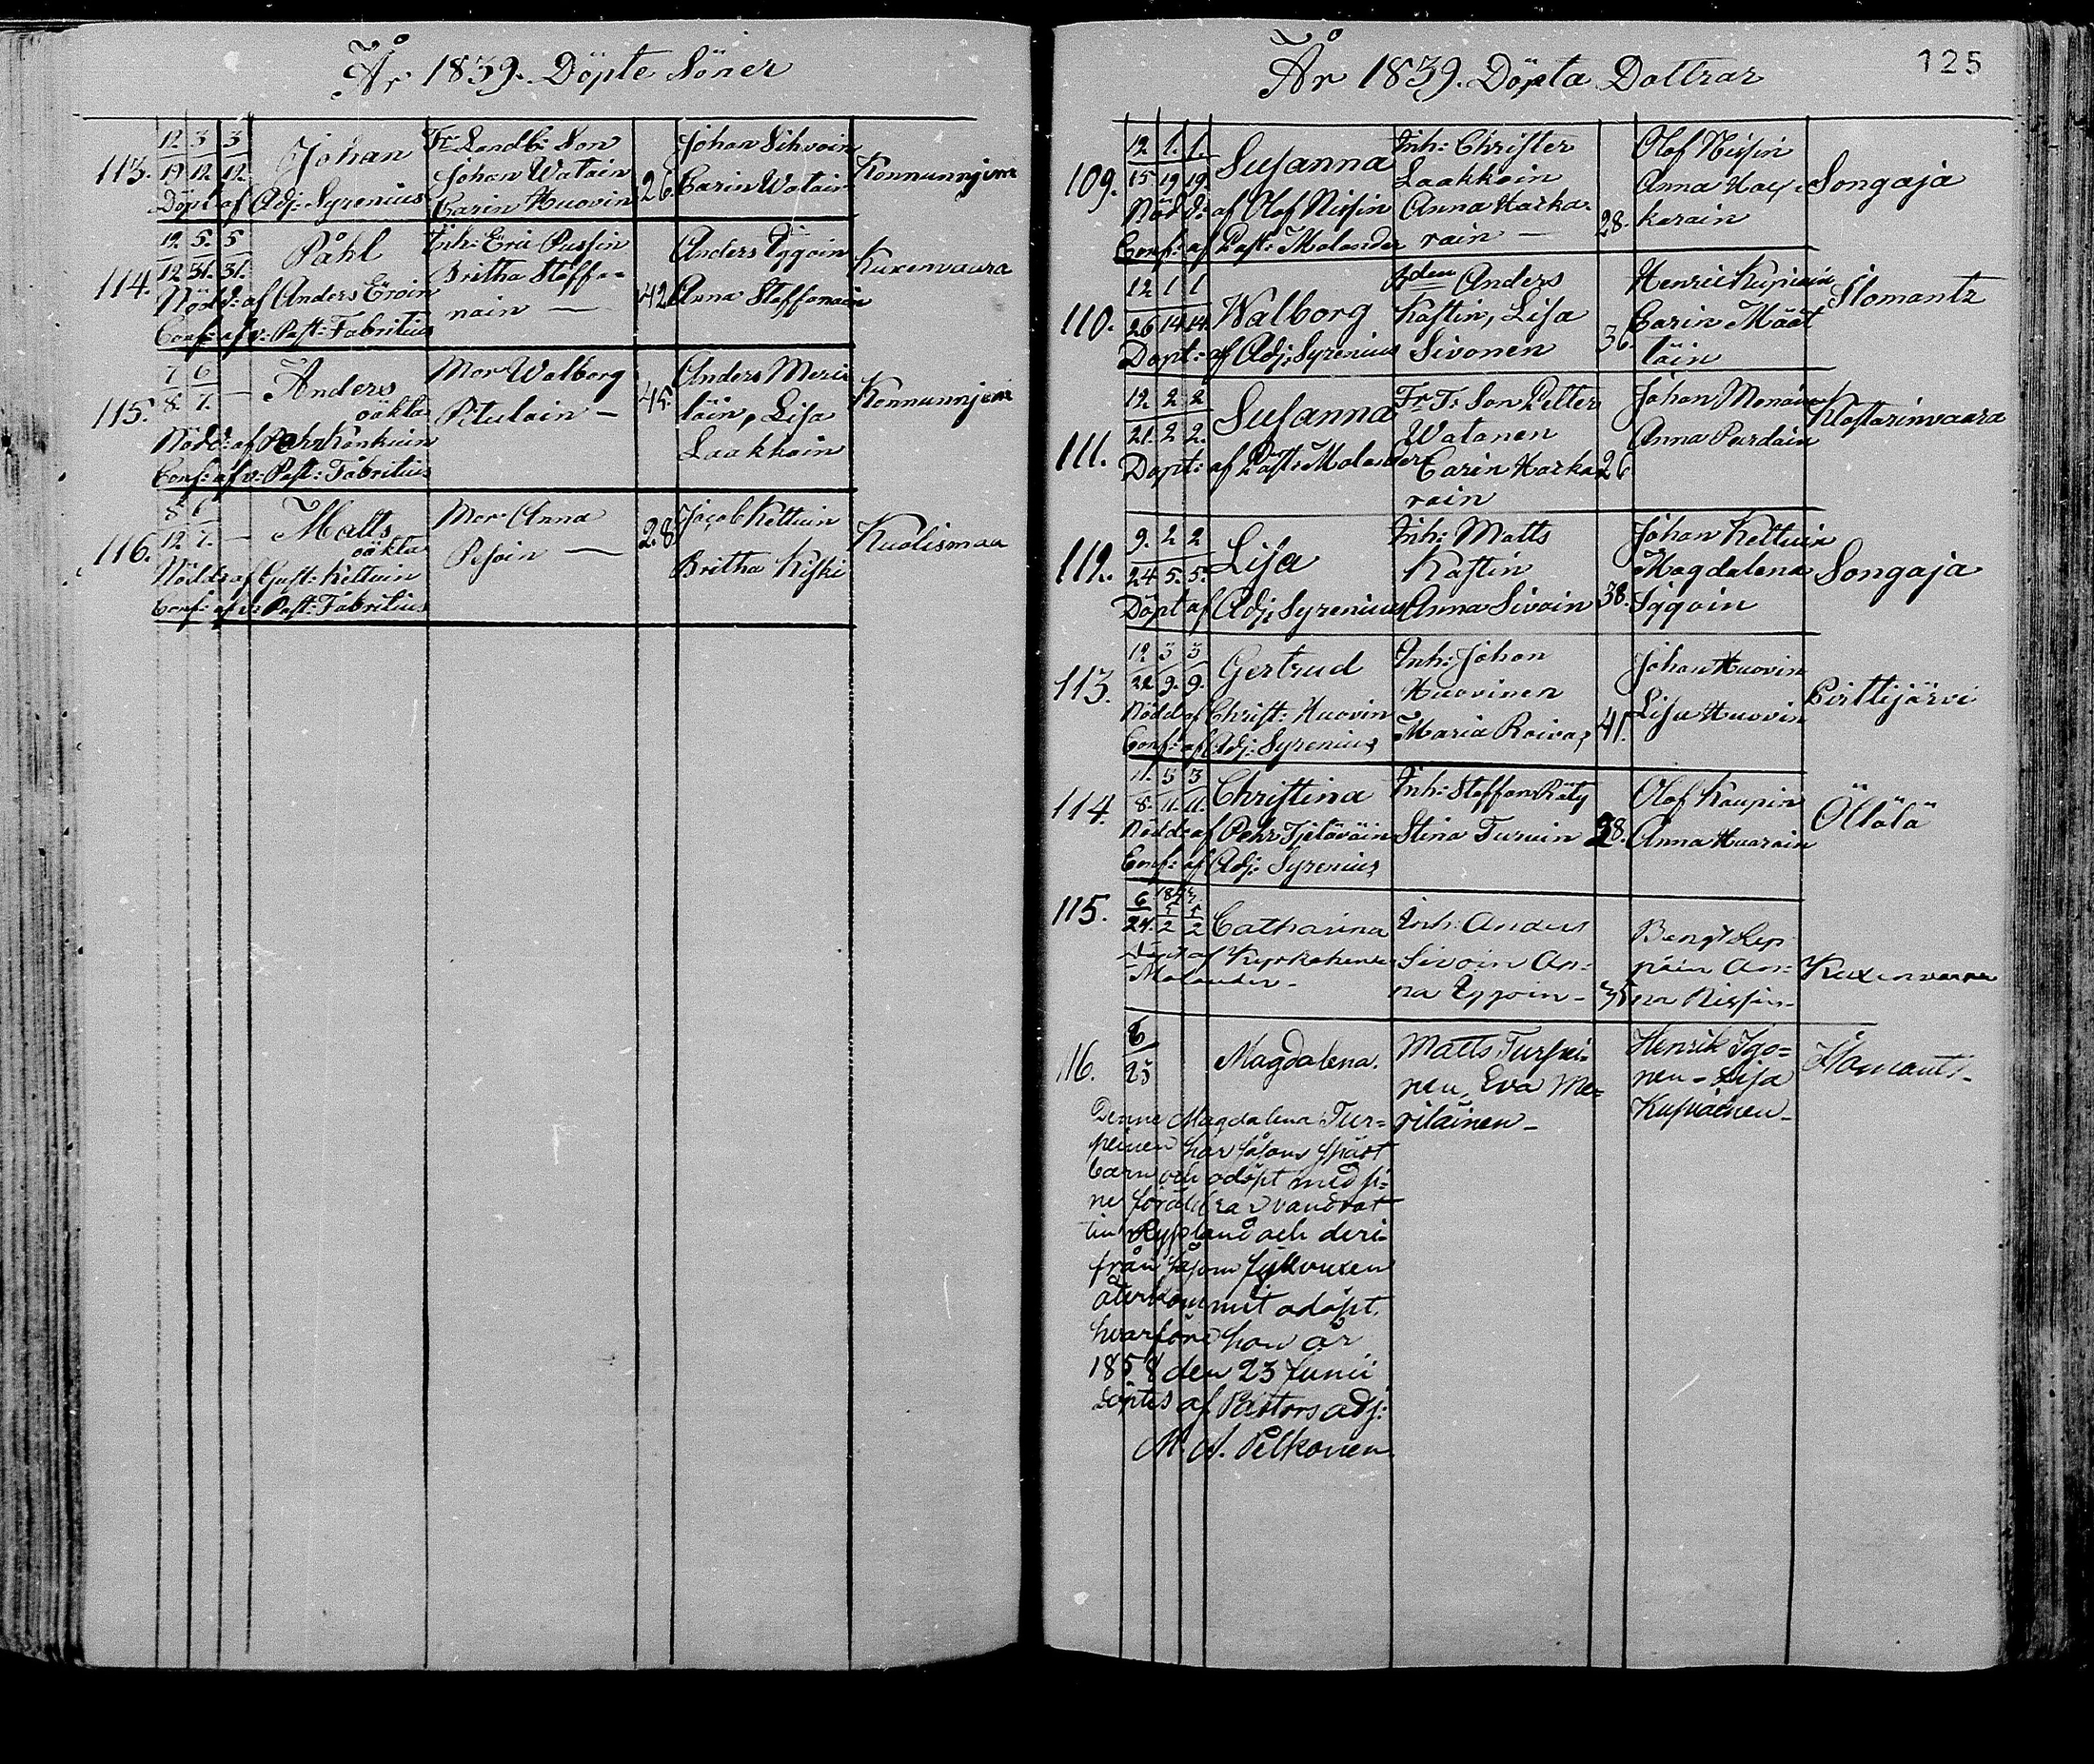 År 1839. Döpte Söner
113. 12 3 3 Johan Fr. Landb: Son Johan Sihvoin
19 12. 12. Johan Watain 26. Carin Watain Konnunnjem
Döpt af Adj: Syrenius Carin Huovin
114. 12. 5. 5 Påhl Inh: Eric Pussin Anders Eggoin
12 31. 31. Britha Staffa= 42. Anna Staffanain Kuxenvaara
Nödd: af Anders Eroin nain —
Conf: af v: Past: Fabritius
115. 7 6 — Anders Mor Walborg 45. Anders Meri Konnunnjem
8. 7. oäkta Pitulain — läin, Lisa
Nödd: af Pehr Kinkuin Laakkoin
Conf: af v: Past: Fabritius
116. 8. 6 — Matts Mor Anna 28 Jacob Kettuin
12 7. oäkta Pesoin — Britha Kiski Kuolismaa
Nödd: af Gust: Kettuin
Conf: af v: Past: Fabritius
År 1839. Döpta Dottrar
125
109. 12 1. 1. Susanna Inh: Christer Olof Nissin
15 19 19. Laakkoin Anna Hax= Songaja
Nödd: af Olof Nissin Anna Karka= 28. karain
Conf: af Past: Molander rain —
110. 12 1 1 Walborg Anders Henric Kuprain Ilomantz
26 14 14. Kastin, Lisa 36. Carin Määt
Döpt: af Adj: Syrenius Sivonen täin
111. 12 2 2 Susanna Fr. T: Son Petter Johan Monain Klostarinvaara
21. 2 2. Watanen Anna Purdain
Döpt: af Past: Molander Carin Karka 26
rain
112. 9. 2 2 Lisa Inh: Matts Johan Kettuin
24 5. 5. Kastin Magdalena Songaja
Döpt af Adj: Syrenius Anna Sivoin 38. Iggoin
113. 12 3 3 Gertrud Inh: Johan Johan Huovin
22 9. 9. Huovinen Lisa Huovin Pirttijärvi
Nödd af Christ: Huovin Maria Roivas 41.
Conf: af Adj: Syrenius
114. 11. 3 3 Christina Inh: Staffan Räty Olof Kaupin Öllölä
8. 11. 11. Stina Turuin 28. Anna Huarain
Nödd: af Pehr Tjetäväin
Conf: af Adj: Syrenius
115. 6 Catharina Inh: Anders Bengt Lep
24. 2 2 Sivoin An= päin An= Kuxenvaara
Döpt af Kyrkoherde na Eggoin - 35 na Nissin -
Molander -
116. 6 Magdalena. Matts Turpei= Henrik Igo= Ilomants -
25 nen, Eva Me= nen - Lisa
riläinen - Kupiainen -
Denne Magdalena Tur=
peinen har såsom spädt
barn och odöpt med si=
ne föräldrar vandrat
till Ryssland och deri=
från såsom fullvuxen
återkommit odöpt,
hvarföre hon år
1858 den 23 Junii
döptes af Pastors adj:
M. A. Pelkonen.